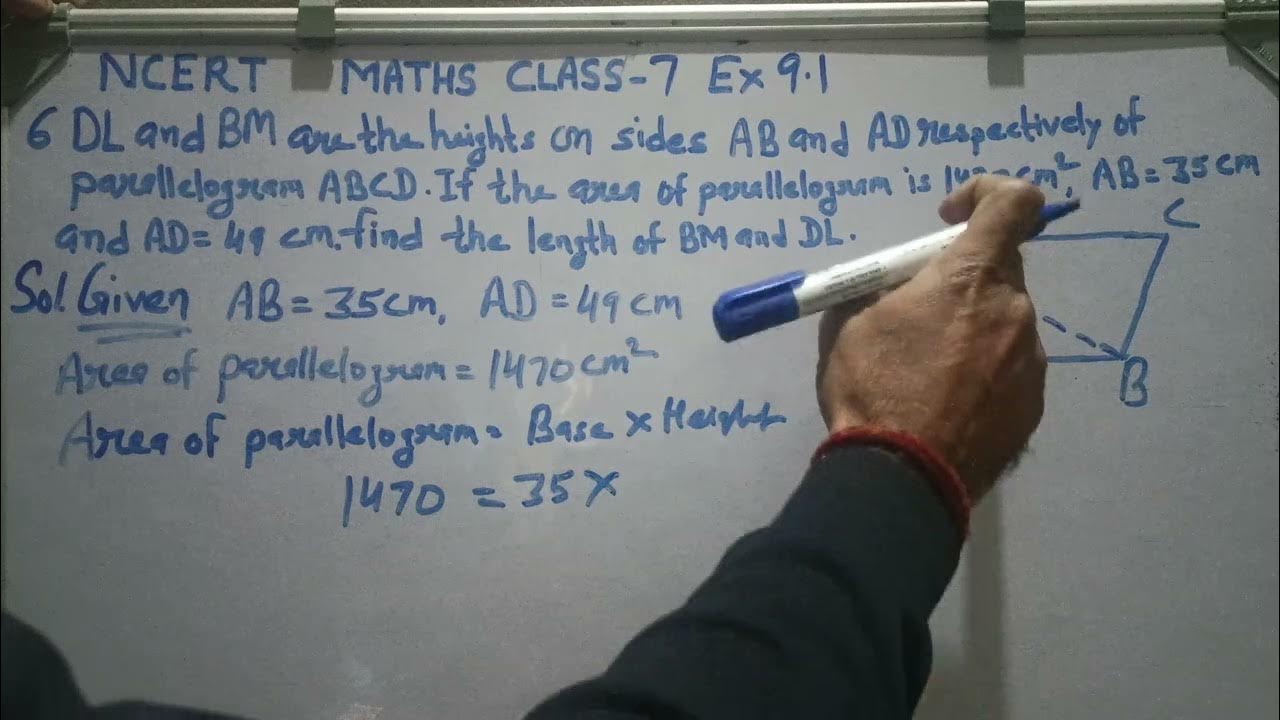 NCERT MATHS CLASS-7 Ex 9.1
6 DL and BM are the heights on sides AB and AD respectively of
parallelogram ABCD. If the area of parallelogram is cm², AB = 35 cm
and AD = 49 cm. find the length of BM and DL.
C
Sol. Given AB = 35cm, AD = 49 cm
Area of parallelogram = 1470 cm²
B
Area of parallelogram = Base × Height
1470 = 35 ×